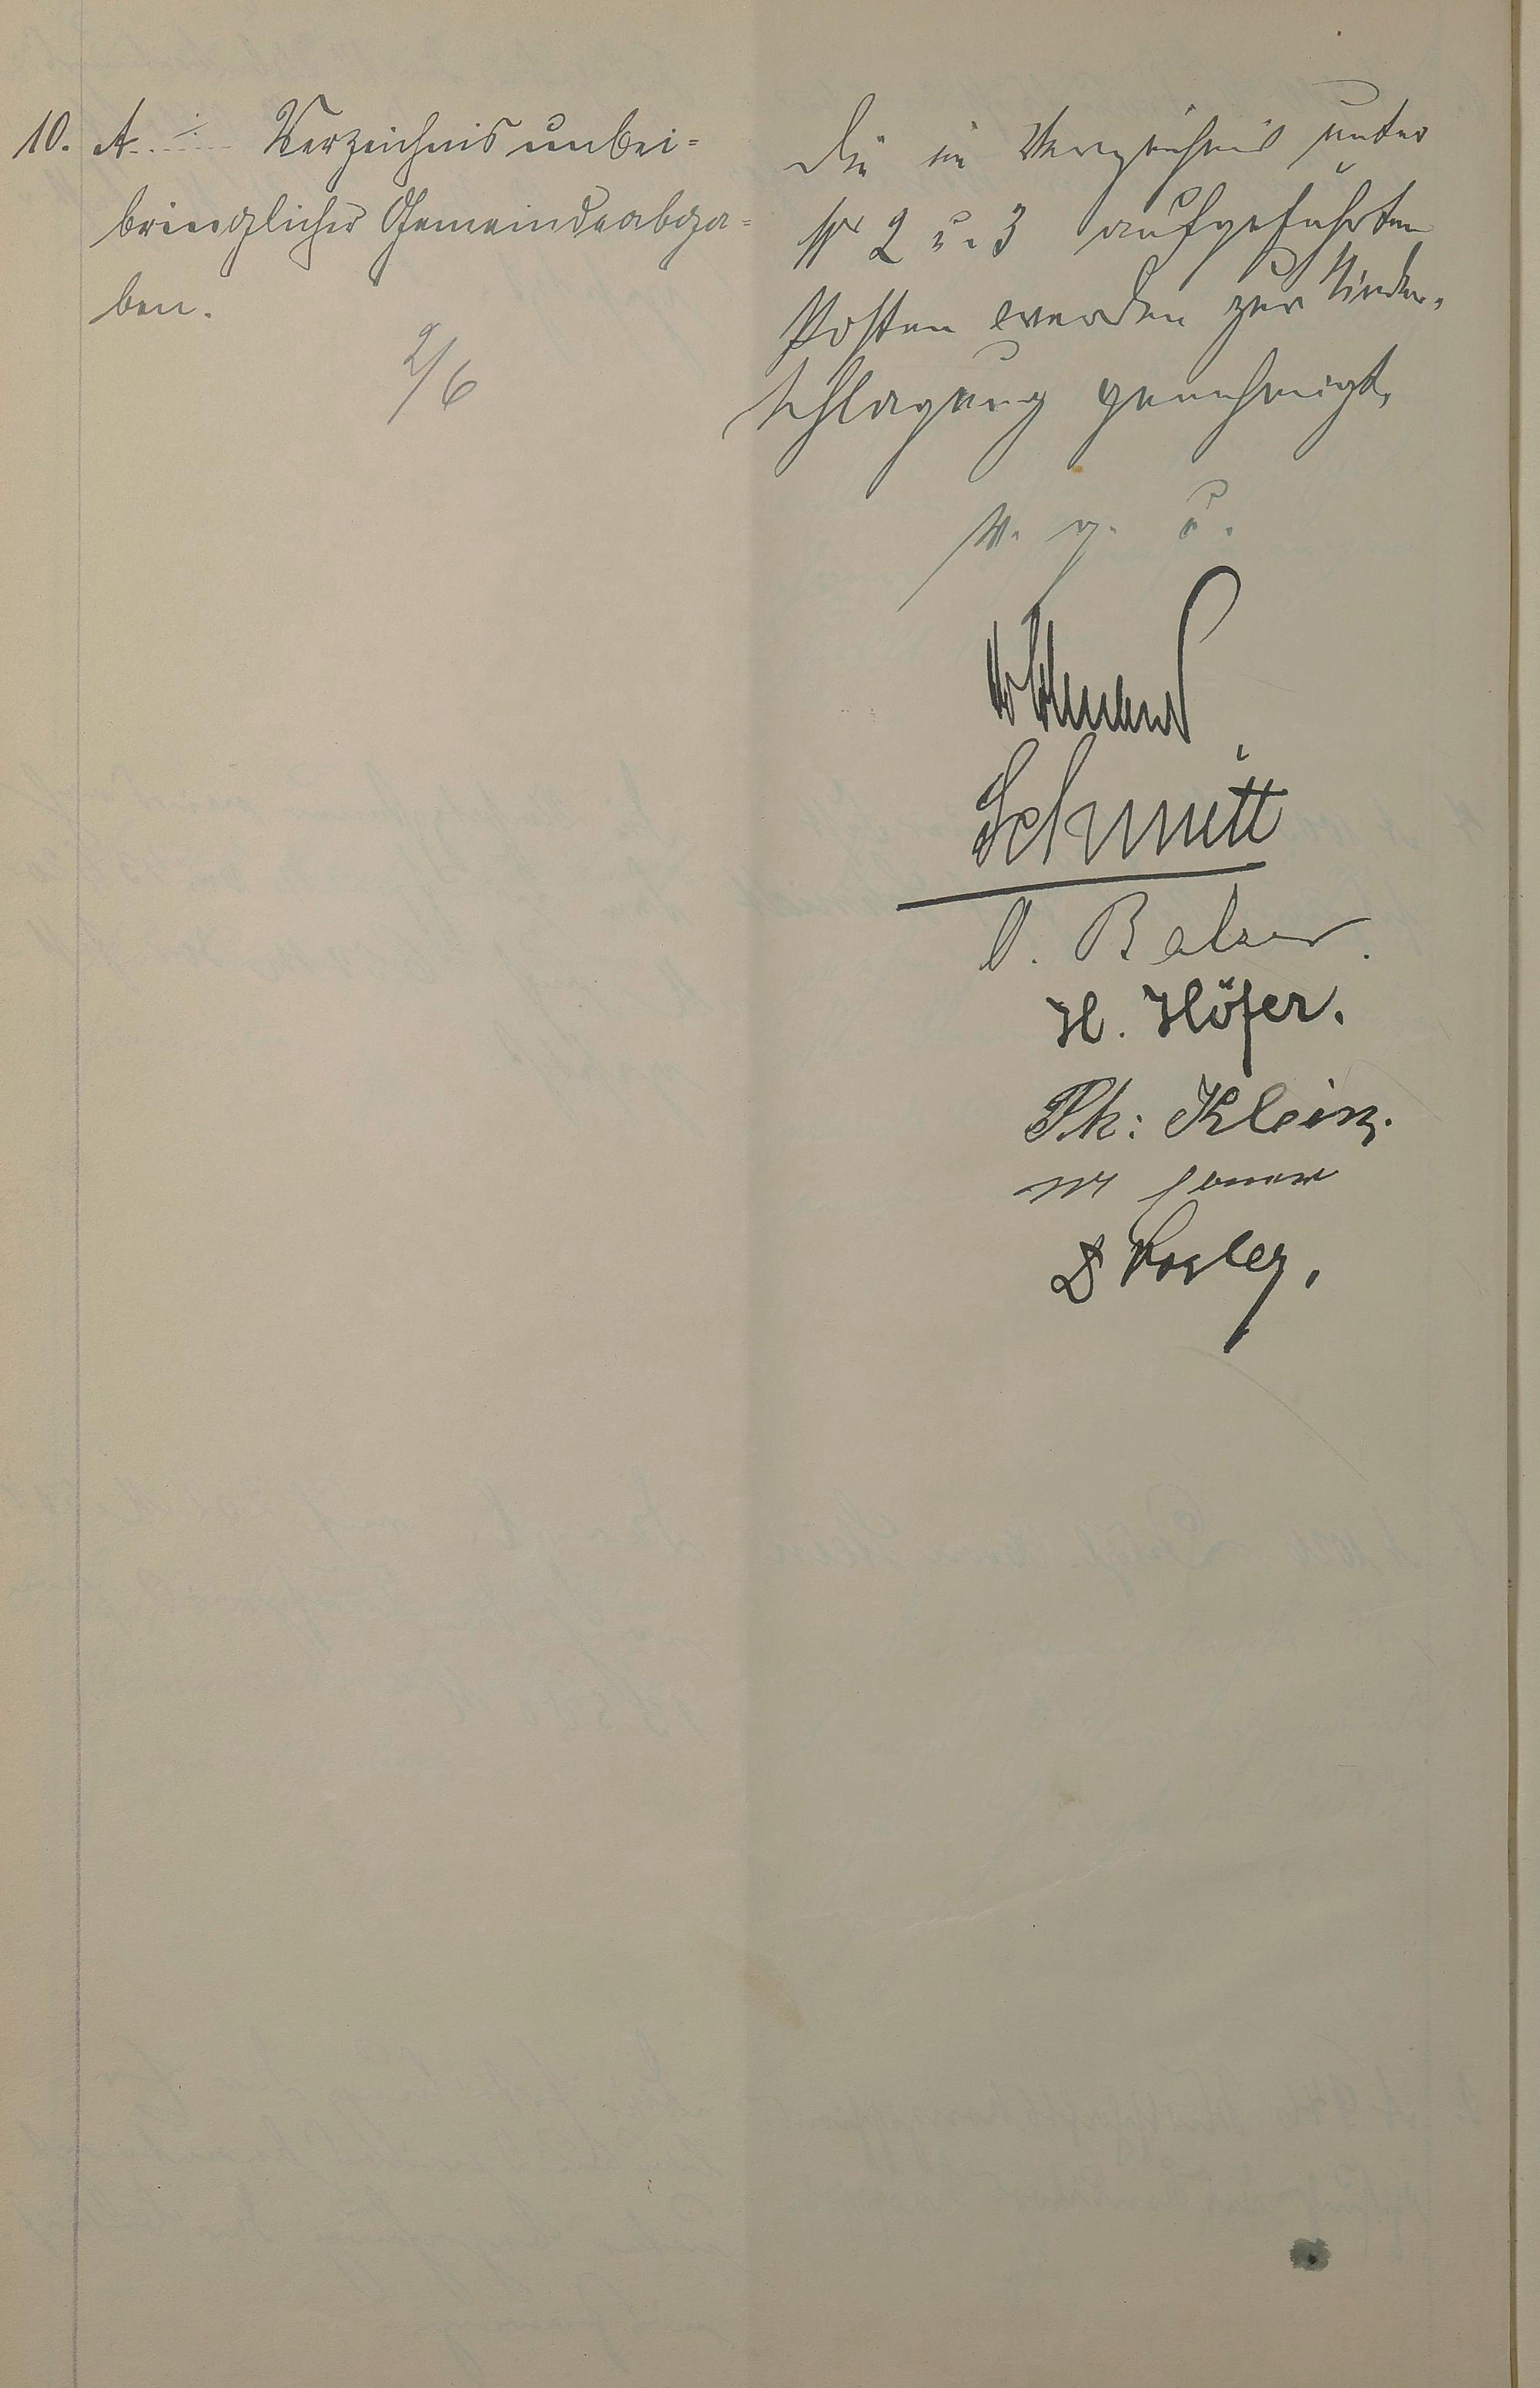 10. A. ./. Verzeichnis unbei=
bringlicher Gemeindeabga=
ben.
2/6
Die im Verzeichnis unter
Nr 2 u. 3 aufgeführten
Posten werden zur Nieder-
schlagung genehmigt.
v. g. u.
Schmitt
Balzer.
H. Höfer.
Ph: Klein.